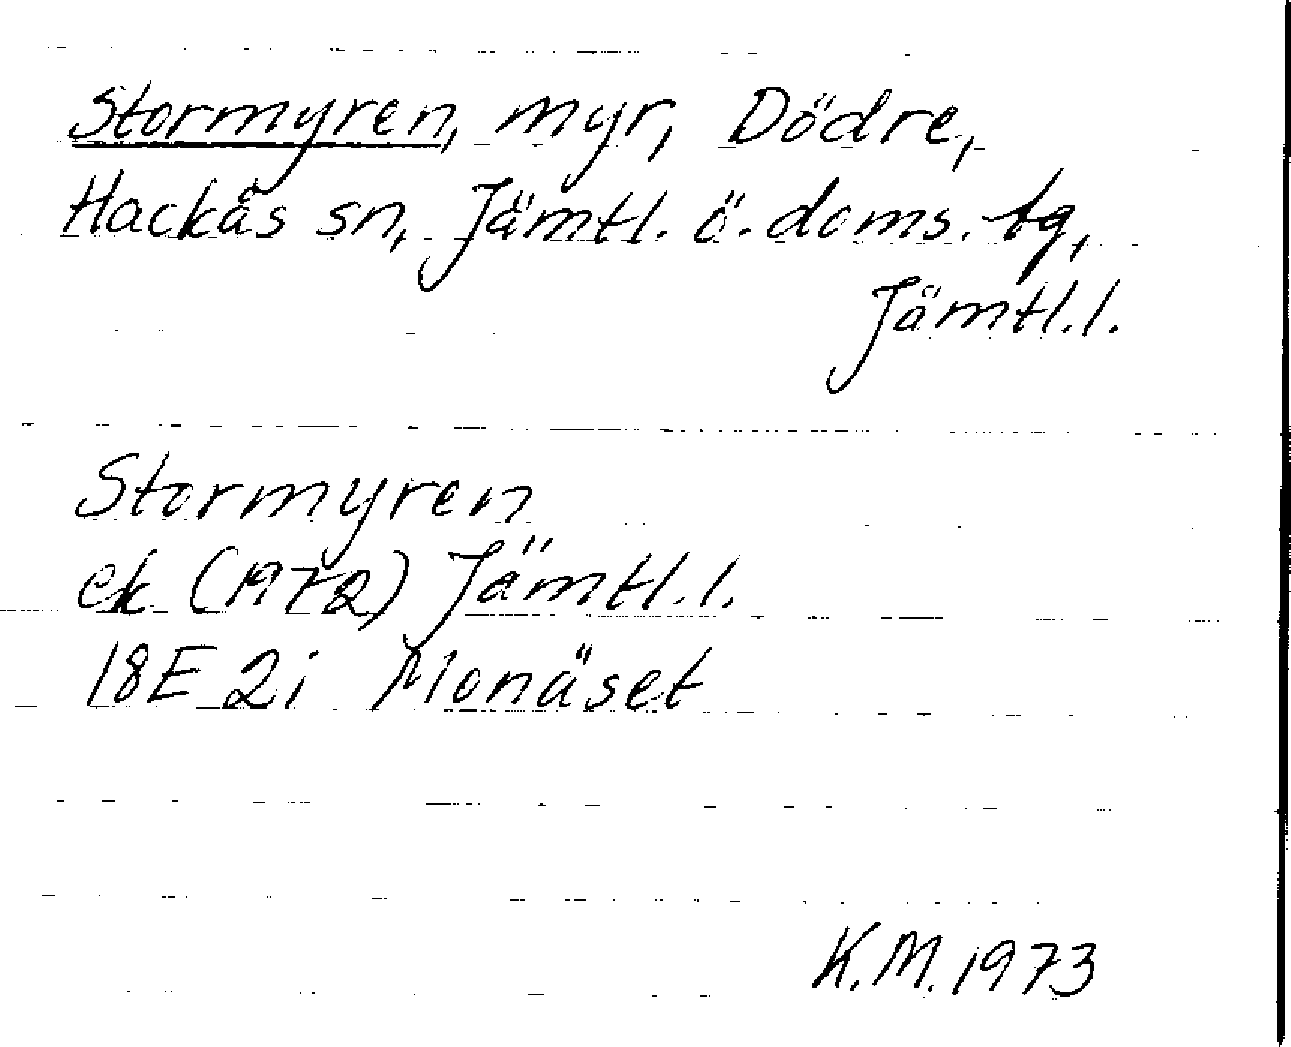 Stormyren, myr, Dödre,
Hackås sn, Jämtl. ö. doms. tg,
Jämtl. l.
Stormyren
ek (1972) Jämtl. l.
18E 2i Monäset
K.M. 1973